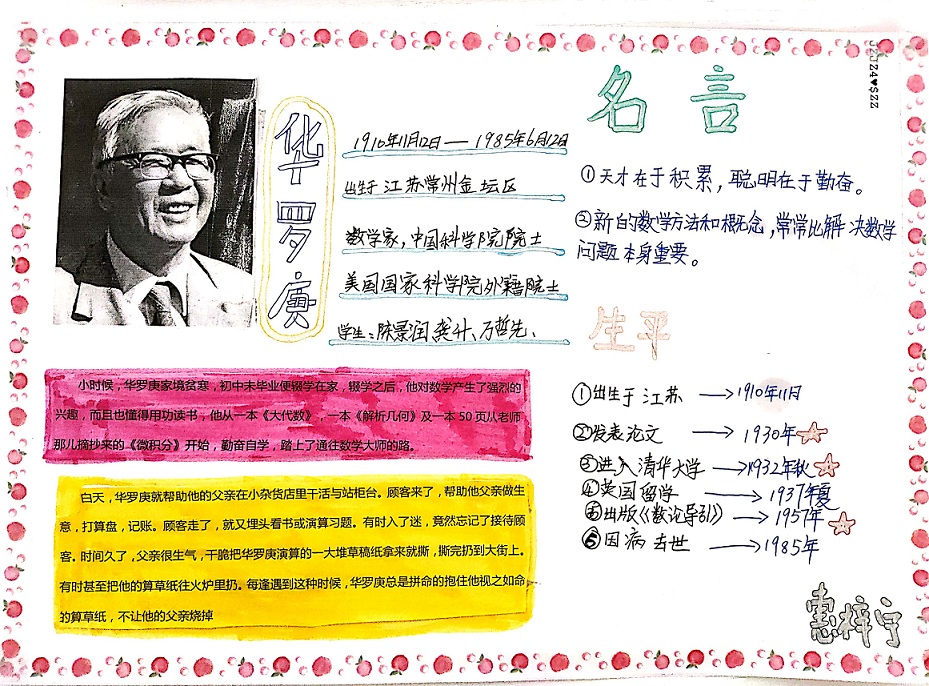 华罗庚
1910年11月12日——1985年6月12日
出生于江苏常州金坛区
数学家，中国科学院院士
美国国家科学院外籍院士
学生：陈景润 龚升、万哲先、
名言
①天才在于积累，聪明在于勤奋。
②新的数学方法和概念，常常比解决数学
问题本身重要。
生平
①出生于江苏 →1910年11月
②发表论文 →1930年
③进入清华大学→1932年秋
④英国留学 →1937年夏
⑤出版《数论导引》→1957年
⑥因病去世 →1985年
小时候，华罗庚家境贫寒，初中未毕业便辍学在家，辍学之后，他对数学产生了强烈的
兴趣，而且也懂得用功读书，他从一本《大代数》，一本《解析几何》及一本50页从老师
那儿摘抄来的《微积分》开始，勤奋自学，踏上了通往数学大师的路。
白天，华罗庚就帮助他的父亲在小杂货店里干活与站柜台。顾客来了，帮助他父亲做生
意，打算盘，记账。顾客走了，就又埋头看书或演算习题。有时入了迷，竟然忘记了接待顾
客。时间久了，父亲很生气，干脆把华罗庚演算的一大堆草稿纸拿来就撕，撕完扔到大街上。
有时甚至把他的算草纸往火炉里扔。每逢遇到这种时候，华罗庚总是拼命的抱住他视之如命
的算草纸，不让他的父亲烧掉
惠梓宁